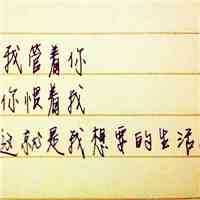 我管着你
你惯着我
这就是我想要的生活。